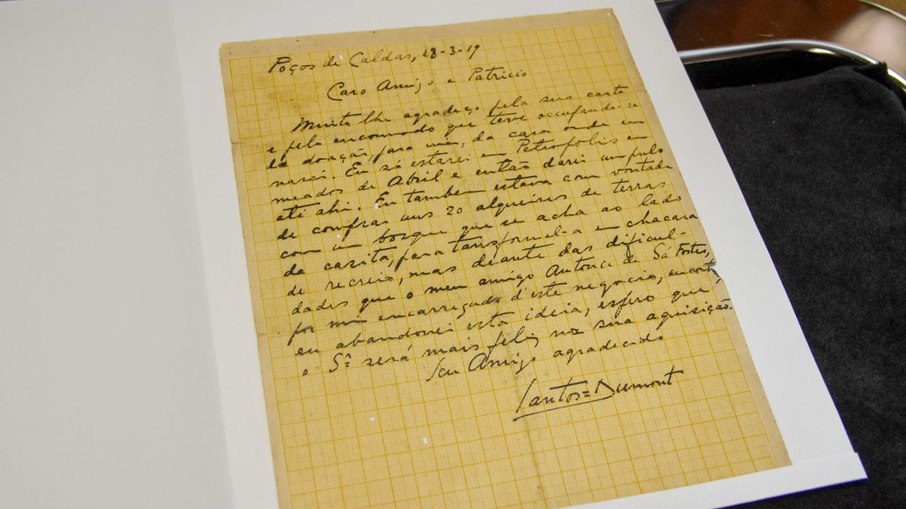 Poços de Caldas, 28-3-19
Caro Amigo e Patricio
Muito lhe agradeço pela sua carta
e pelo encommodo que teve occupando-se
da doação, para mim, da casa onde eu
nasci. Eu só estarei em Petropolis em
meados de Abril e então darei um pulo
até ahi. Eu tambem estava com vontade
de comprar uns 20 alqueires de terras
com um bosque que se acha ao lado
da casita, para transformal-a em chacara
de recreio, mas deante das dificul-
dades que o meu amigo Antonio de Sá Fortes,
por mim encarregado d'este negocio, encontr
eu abandonei esta ideia, espero que
o Sr. será mais feliz na sua aquisição.
Seu Amigo agradecido
Santos=Dumont